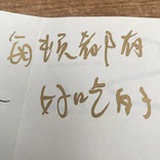 每顿都有
好吃的